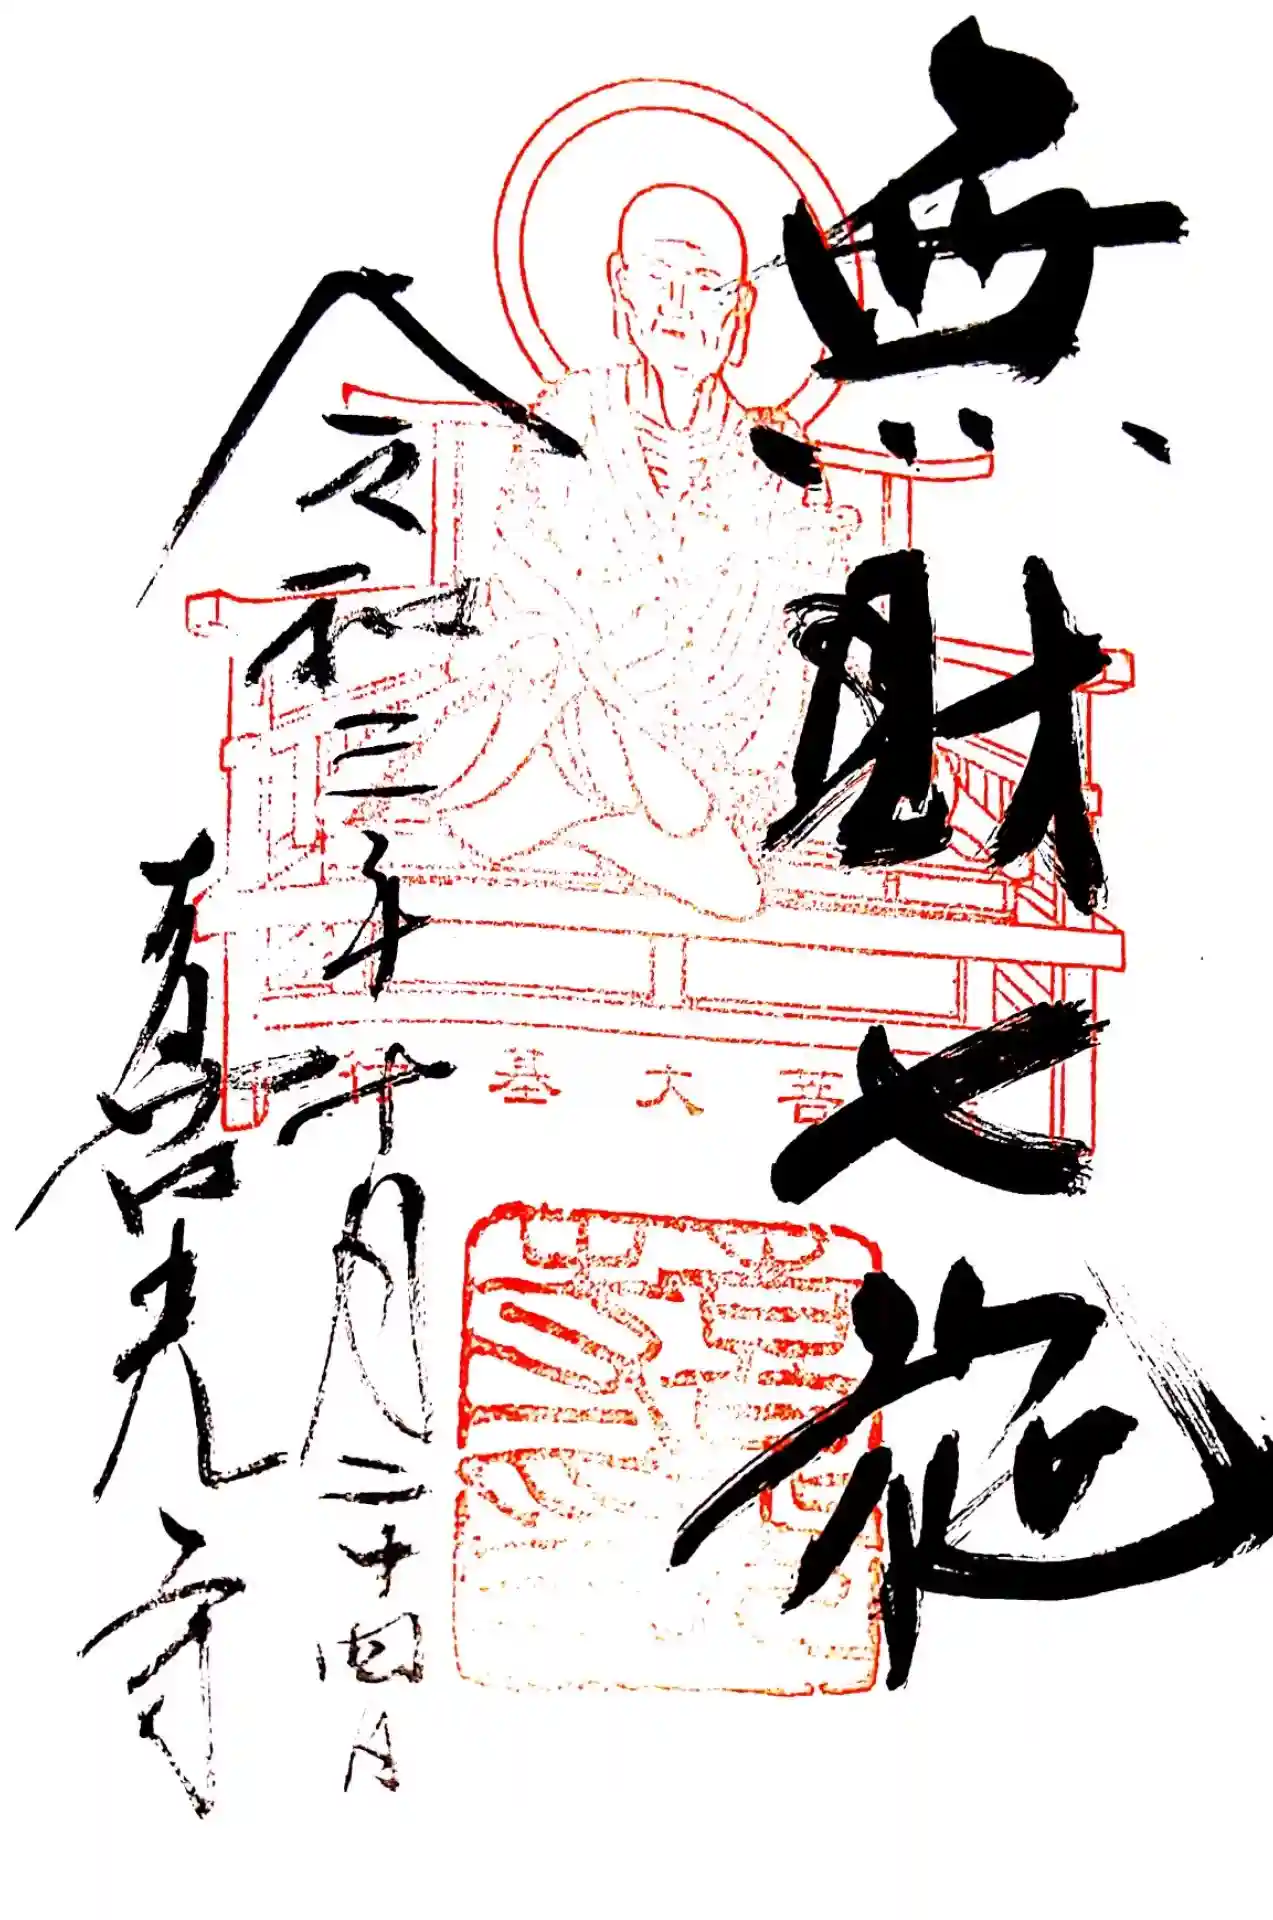 無財七施
令和三年十月二十四日
喜光寺
行基大菩